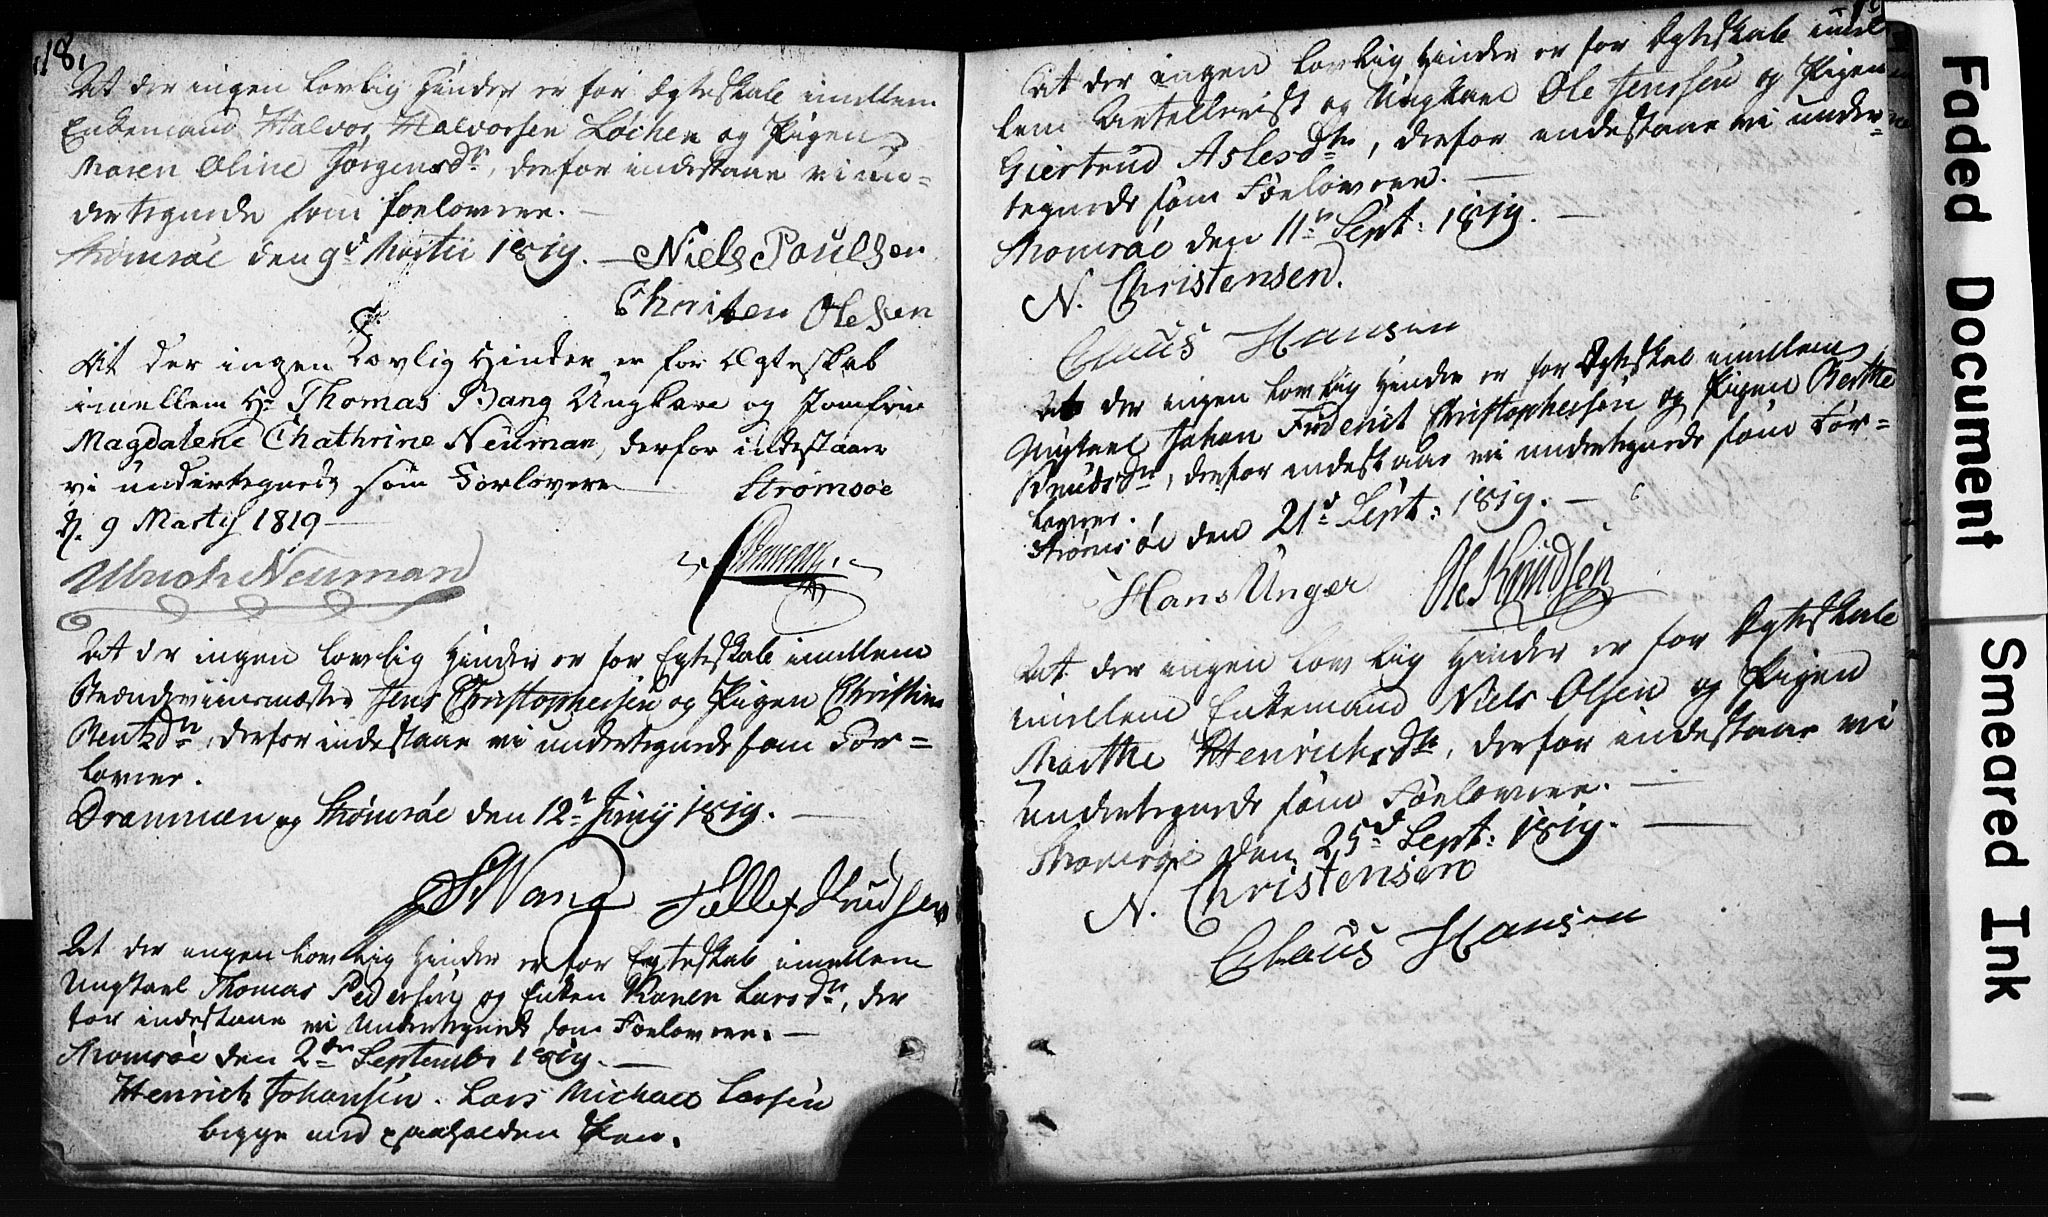 18.
At der ingen lovlig Hinder er for Egteskab imellem
Enkemand Halvor Halvorsen Løchen og Pigen
Maren Oline Jørgensdr, derfor indestaae vi un=
dertegnede som Forlovere.
Strømsøe den 9d Martii 1819. — Niels Poulsen
Christen Olesen
At der ingen Lovlig Hinder er for Ægteskab
imellem Hr Thomas Bang Ungkare og Jomfrue
Magdalene Chathrine Neuman, derfor indestaaer
vi undertegnede som Forlovere Strømsøe
d. 9 Martij 1819
Ulrich Neuman
At der ingen lovlig Hinder er for Egteskab imellem
Brændeviinsmæster Jens Christophersen og Pigen Christine
Bentsdr, derfor indestaae vi undertegnede som For=
lovere.
Drammen og Strømsøe den 12t Junij 1819. —
Wang Knudsen
At der ingen lovlig Hinder er for Egteskab imellem
Ungkarl Thomas Pedersen og Enken Karen Larsdr, der
for indestaae vi Undertegnede som Forlovere. —
Strømsøe den 2den September 1819. —
Henrich Johansen. Lars Michael Larsen
begge med paaholden Pen.
19
At der ingen lovlig Hinder er for Egteskab imel
lem Artellerist og Ungkarl Ole Jenssen og Pigen
Giertrud Aslesdtr, derfor indestaae vi under=
tegnede som Forlovere. —
Strømsøe den 11te Sept: 1819. —
N. Christensen.
Claus Hansen
At der ingen lovlig Hinder er for Egteskab imellem
Ungkarl Johan Friderich Christophersen og Pigen Berthe
Knudsdtr, derfor indestaae vi undertegnede som For=
lovere.
Strømsøe den 21d Sept: 1819. —
Hans Unger Ole Knudsen
At der ingen lovlig Hinder er for Egteskab
imellem Enkemand Niels Olsen og Pigen
Marthe Henrichsdtr, derfor indestaae vi
undertegnede som Forlovere. —
Strømsøe den 25d Sept: 1819. —
N. Christensen
Claus Hansen
Faded Document
Smeared Ink